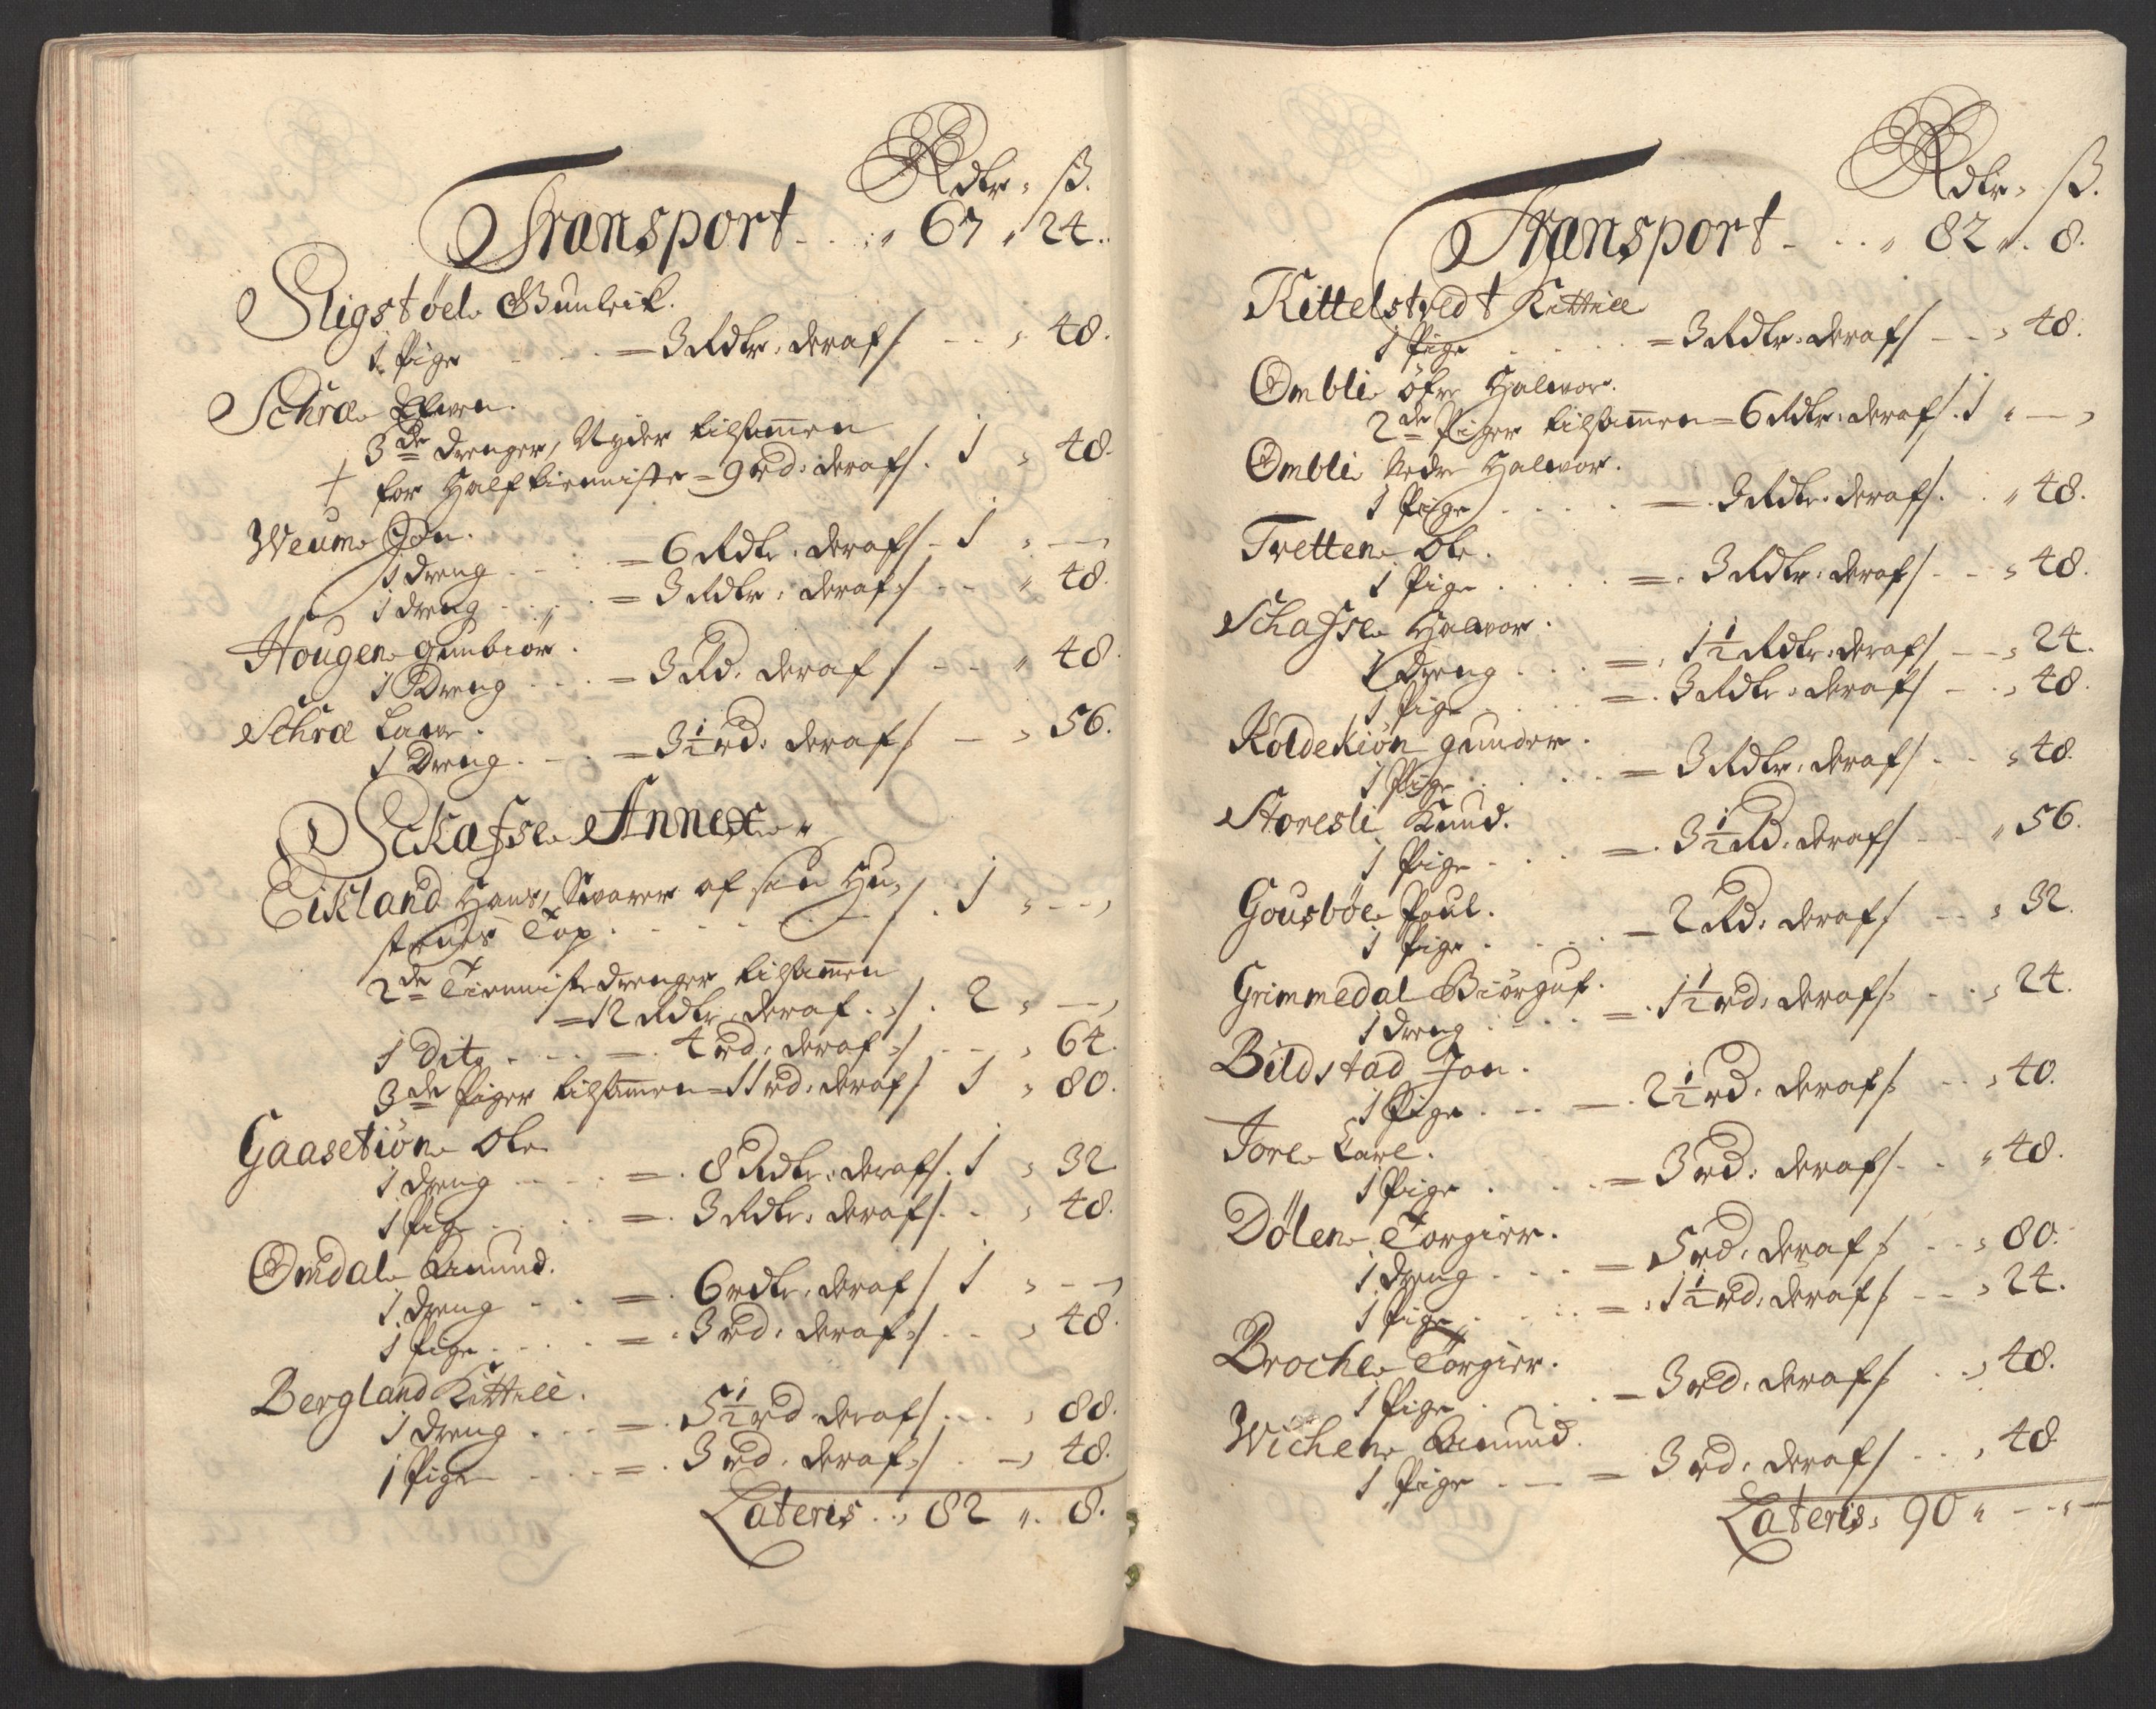 Rdlr. ß.
Transport - - 67 " 24.
Sligstøel Gunleik.
1 Pige - - = 3 Rdlr: deraf - - 48.
Schræ
3de drenger, Nyder tilsammen
+ for Halftienniste = 9 rd: deraf . 1 " 48.
Weum Jon.
1 dreng - - = 6 Rdlr: deraf - 1 " -
1 dreng - - = 3 Rdlr: deraf - - " 48.
Hougen gunbiør.
1 Dreng - - = 3 Rd: deraf - - " 48.
Schræ Lars.
1 Dreng - - = 3½ rd: deraf - " 56.
Schafse Annex
Eikland Hans, Svarer af sin Hu-
struis Cop. - - - - 1 " - -
2de Tienniste drenger tilsammen
= 12 Rdlr: deraf . 2 " -
1 dito - - = 4 rd: deraf - - " 64.
3de Piger tilsammen = 11 rd: deraf 1 " 80.
Gaasetiøn Ole
1 dreng - - = 8 Rdlr: deraf . 1 " 32
1 Pige - - = 3 Rdlr: deraf - - " 48.
Omdal Amund.
1 dreng - - = 6 rdlr: deraf 1 " - -
1 Pige - - = 3 rd: deraf - - " 48.
Bergland Kittill.
1 dreng - - = 5½ rd deraf - - " 88.
1 Pige - - = 3 rd: deraf - - " 48.
Lateris - " 82 " 8.
Rdlr. ß.
Transport - - " 82 " 8.
Kittelstvedt Kittill
1 Pige - - = 3 Rdlr: deraf - - " 48.
Ombli øfre Halvor.
2de Piger tilsammen = 6 Rdlr: deraf . 1 " -
Ombli Nedre Halvor.
1 Pige - - = 3 Rdlr: deraf - " 48.
Tretten Ole.
1 Pige - - = 3 Rdlr: deraf - - " 48.
Schafse Halvor.
1 Dreng - - = 1½ Rdlr: deraf - " 24.
1 Pige - - = 3 Rdlr: deraf - " 48.
Koldekiøn gunder.
1 Pige - - = 3 Rdlr: deraf - - " 48.
Storesli Knud.
1 Pige - - = 3½ Rd: deraf - - " 56.
Gousbøe Poul.
1 Pige - - = 2 Rd: deraf - - " 32.
Grimmedal Biørguf.
1 dreng - - = 1½ rd: deraf - - " 24.
Bildstad Jon.
1 Pige - - = 2½ rd: deraf - - " 40.
Tore Carl.
1 Pige - - = 3 rd: deraf - - " 48.
Dølen Torgier.
1 dreng - - = 5 rd: deraf - - " 80.
1 Pige - - = 1½ rd: deraf - - " 24.
Broche Torgier.
1 Pige - - = 3 rd: deraf - - " 48.
Wichen Amund.
1 Pige - - = 3 rd: deraf - - " 48
Lateris: 90 " - -